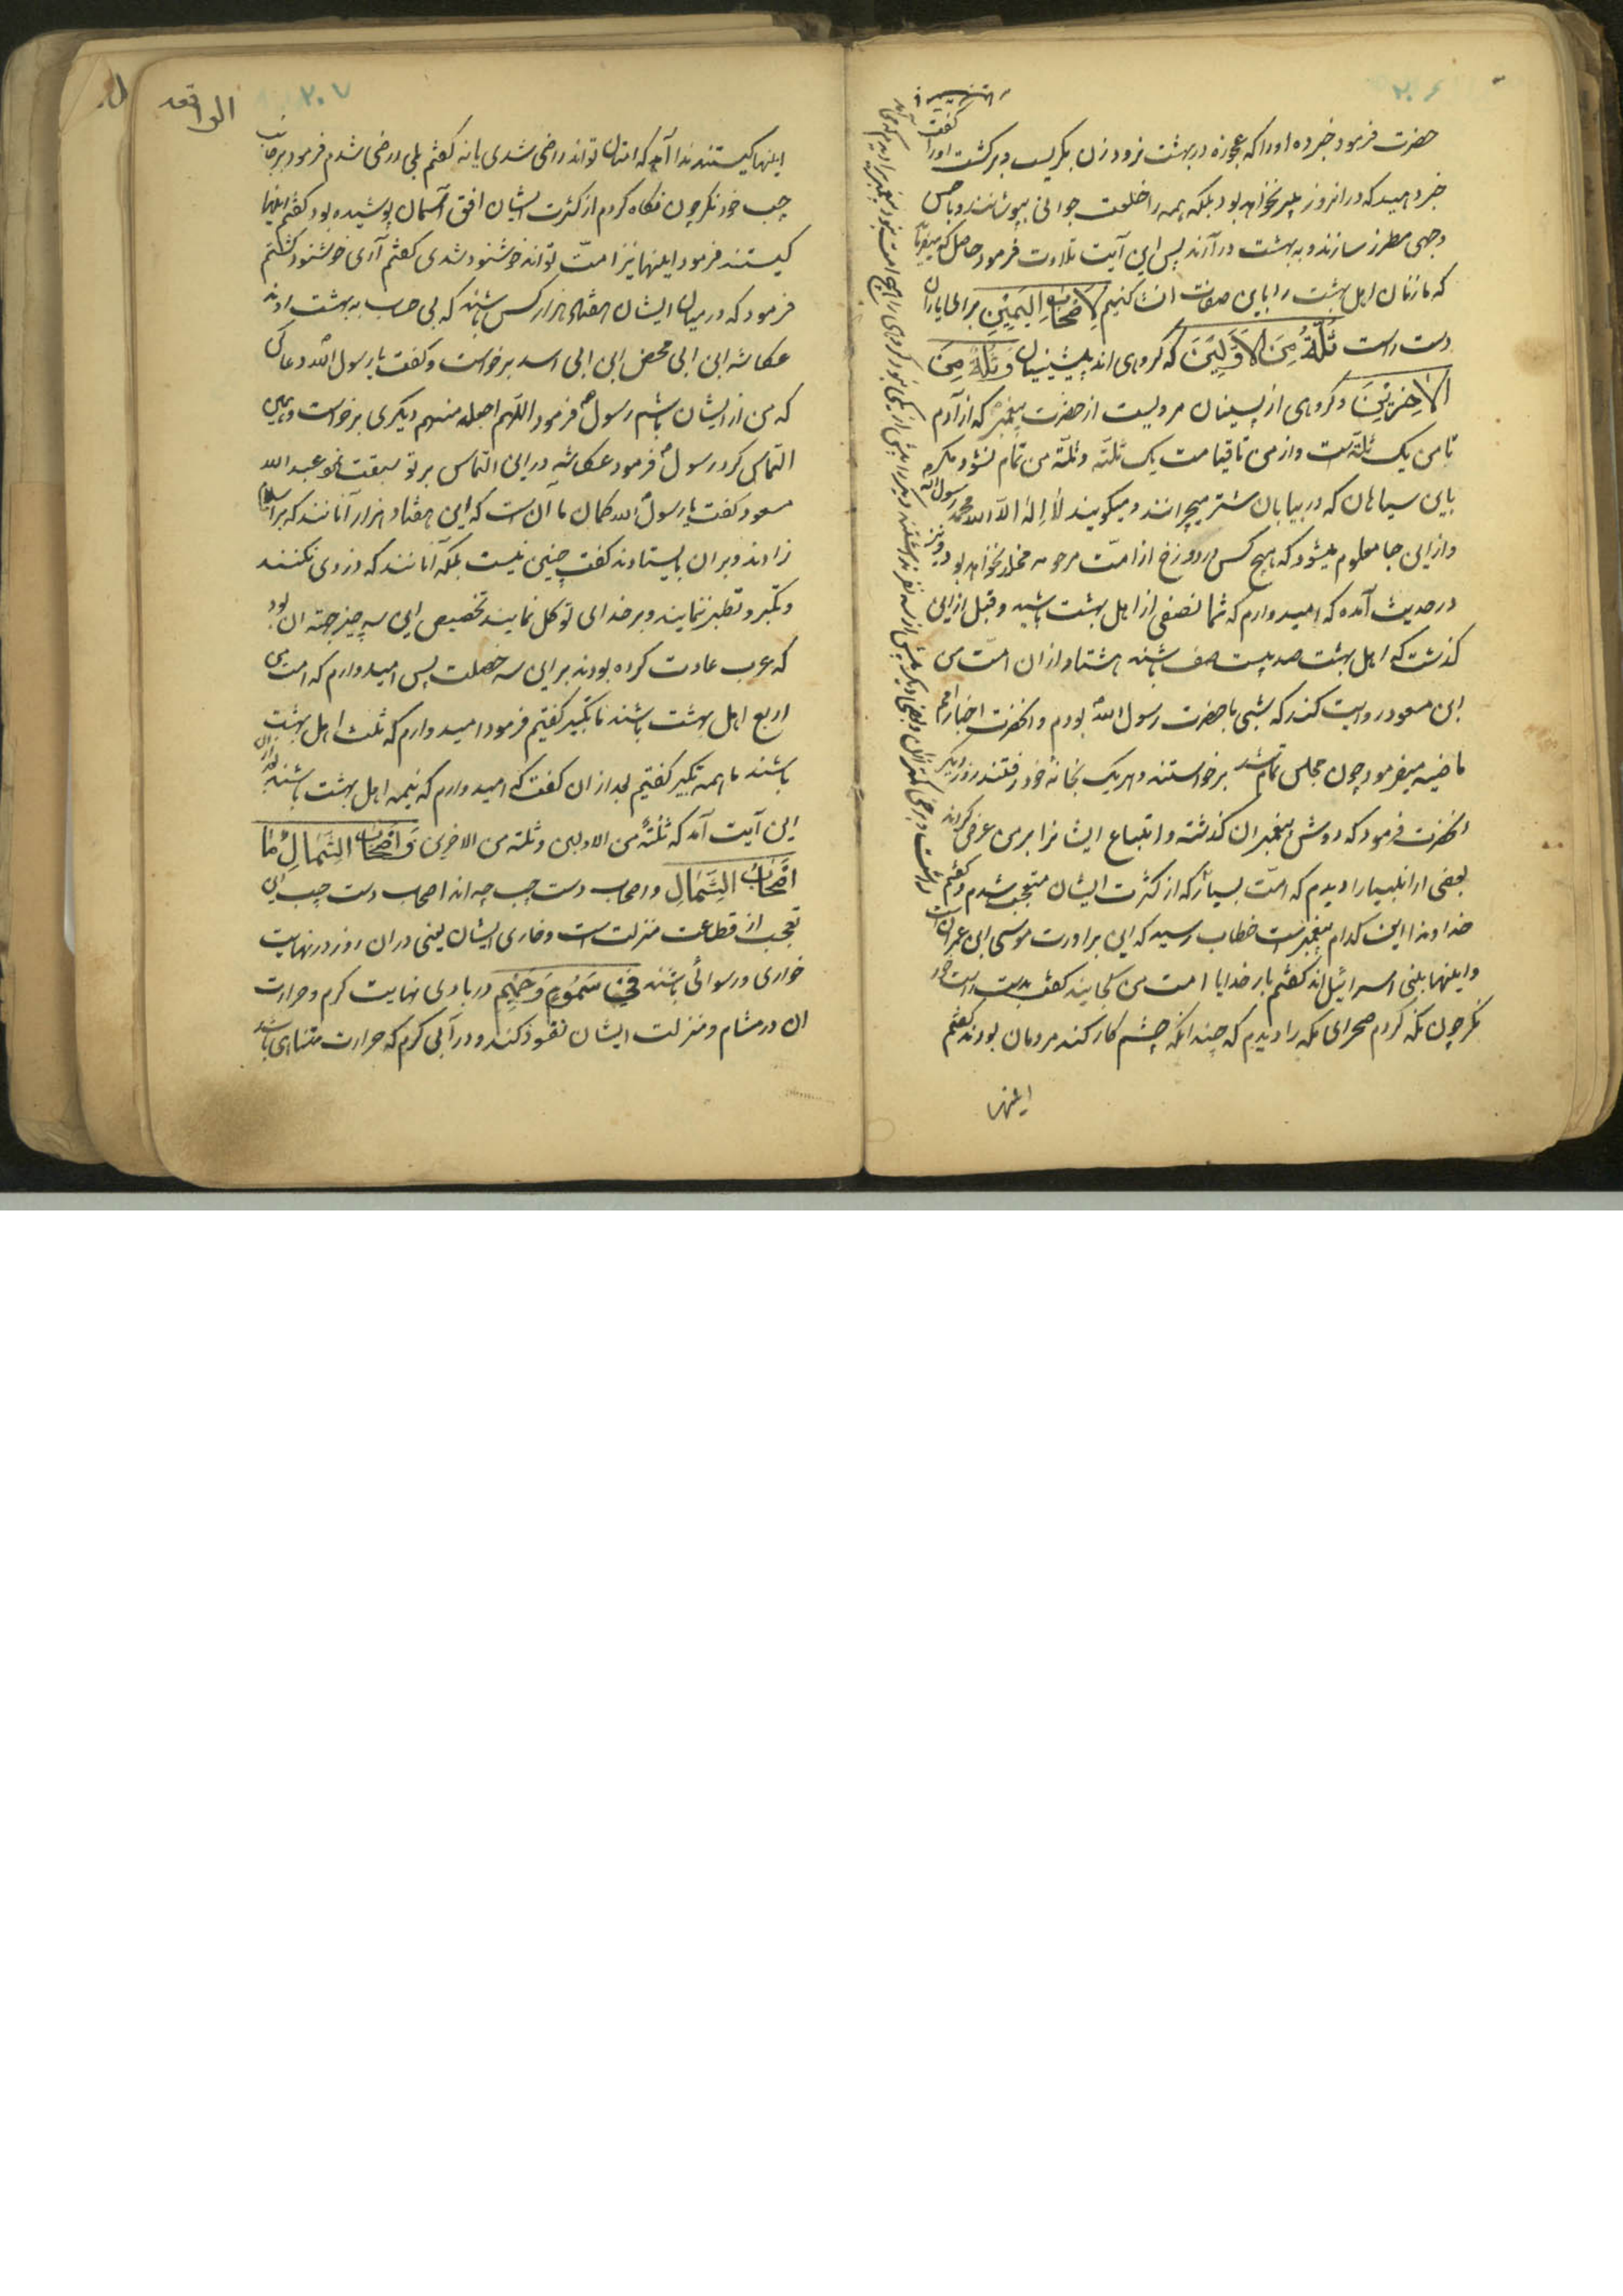 ۲۰۶
حضرت فرمود خبر ده او را که عجوزه در بهشت نرود زن بگریست و برگشت او را گفت
خبر دهید که در انروز پیر نخواهد بود بلکه همه را خلعت جوانی بپوشانند و باحسن
وجهی مطرز سازند و به بهشت درآرند پس این آیت تلاوت فرمود حاصل که میفرماید
که ما زنان اهل بهشت را باین صفات انشا کنیم لِاَصْحَابِ الْیَمِیْنِ برای یاران
دست راست ثُلَّةٌ مِنَ الْاَوَّلِیْنَ که گروهی اند از پیشینیان وَ ثُلَّةٌ مِنَ
الْاٰخِرِیْنَ و گروهی از پسینان مرویست از حضرت پیغمبر که از آدم
تا من یک ثلّة است و از من تا قیامت یک ثلّة و ثلّة من تمام نشود مگر
باین سیاهان که در بیابان شتر میچرانند و میگویند لا اِلٰهَ اِلّا الله محمد رسول الله
و از این جا معلوم میشود که هیچ کس در دوزخ از امّت مرحومه مخلد نخواهد بود و نیز
در حدیث آمده که امیدوارم که شما نصفی از اهل بهشت باشید و قبل از این
گذشت که اهل بهشت صد و بیست صف باشند هشتاد از ان امّت من
ابن مسعود روایت کند که شبی با حضرت رسول الله بودم و انحضرت اخبار امم
ماضیه میفرمود چون مجلس تمام شد برخواستند و هر یک بخانه خود رفتند روز دیگر
انحضرت فرمود که دوش پیغمبران گذشته و اتباع ایشانرا بر من عرض کردند
بعضی از انبیا را دیدم که امّت بسیار که از کثرت ایشان متعجب شدم و گفتم
خداوندا این کدام پیغمبر است خطاب رسید که این برادرت موسی ابن عمران است
و اینها بنی اسرائیل اند گفتم بار خدایا امت من کجایند گفت بدست راست خود
نگر چون نگه کردم صحرای مکه را دیدم که چندانکه چشم کار کند مردمان بودند گفتم
اینها
الواقعه
۲۰۷
اینها کیستند ندا آمد که امتان تو اند راضی شدی یا نه گفتم بلی راضی شدم فرمود بر جانب
چپ خود نگر چون نگاه کردم از کثرت ایشان افق آسمان پوشیده بود گفتم اینها
کیستند فرمود اینها نیز امت تو اند خوشنود شدی گفتم آری خوشنود گشتم
فرمود که در میان ایشان هفتاد هزار کس باشند که بی حساب به بهشت روند
عکاشه ابن ابی محض ابن ابی اسد برخواست و گفت یا رسول الله دعا کن
که من از ایشان باشم رسول فرمود اللهم اجعله منهم دیگری برخواست و همین
التماس کرد رسول فرمود عکاشه در این التماس بر تو سبقت نمود عبد الله
مسعود گفت یا رسول الله گمان ما آن است که این هفتاد هزار آنانند که بر اسلام
زادند و بر ان بایستادند گفت چنین نیست بلکه آنانند که دزدی نکنند
و تکبر و تطیر ننمایند و بر خدای توکل نمایند تخصیص این سه چیز جهة ان بود
که عرب عادت کرده بودند بر این سه خصلت پس امیدوارم که امت من
اربع اهل بهشت باشند ما تکبیر گفتیم فرمود امیدوارم که ثلث اهل بهشت
باشند ما همه تکبیر گفتیم بعد از ان گفت که امیدوارم که نیمه اهل بهشت باشند بعد از ان
این آیت آمد که ثلّةٌ من الاولین و ثلة من الاخرین وَ اَصْحَابُ الشِّمَالِ مٰا
اَصْحَابُ الشِّمَالِ و اصحاب دست چپ چه اند اصحاب دست چپ این
تعجب از قطاعت منزلت است و خاری ایشان یعنی در ان روز در نهایت
خواری و رسوائی باشند فِیْ سَمُوْمٍ وَ حَمِیْمٍ در بادی نهایت گرم و حرارت
ان در مشام و منزلت ایشان نفوذ کند و در آبی گرم که حرارت متناهی باشد